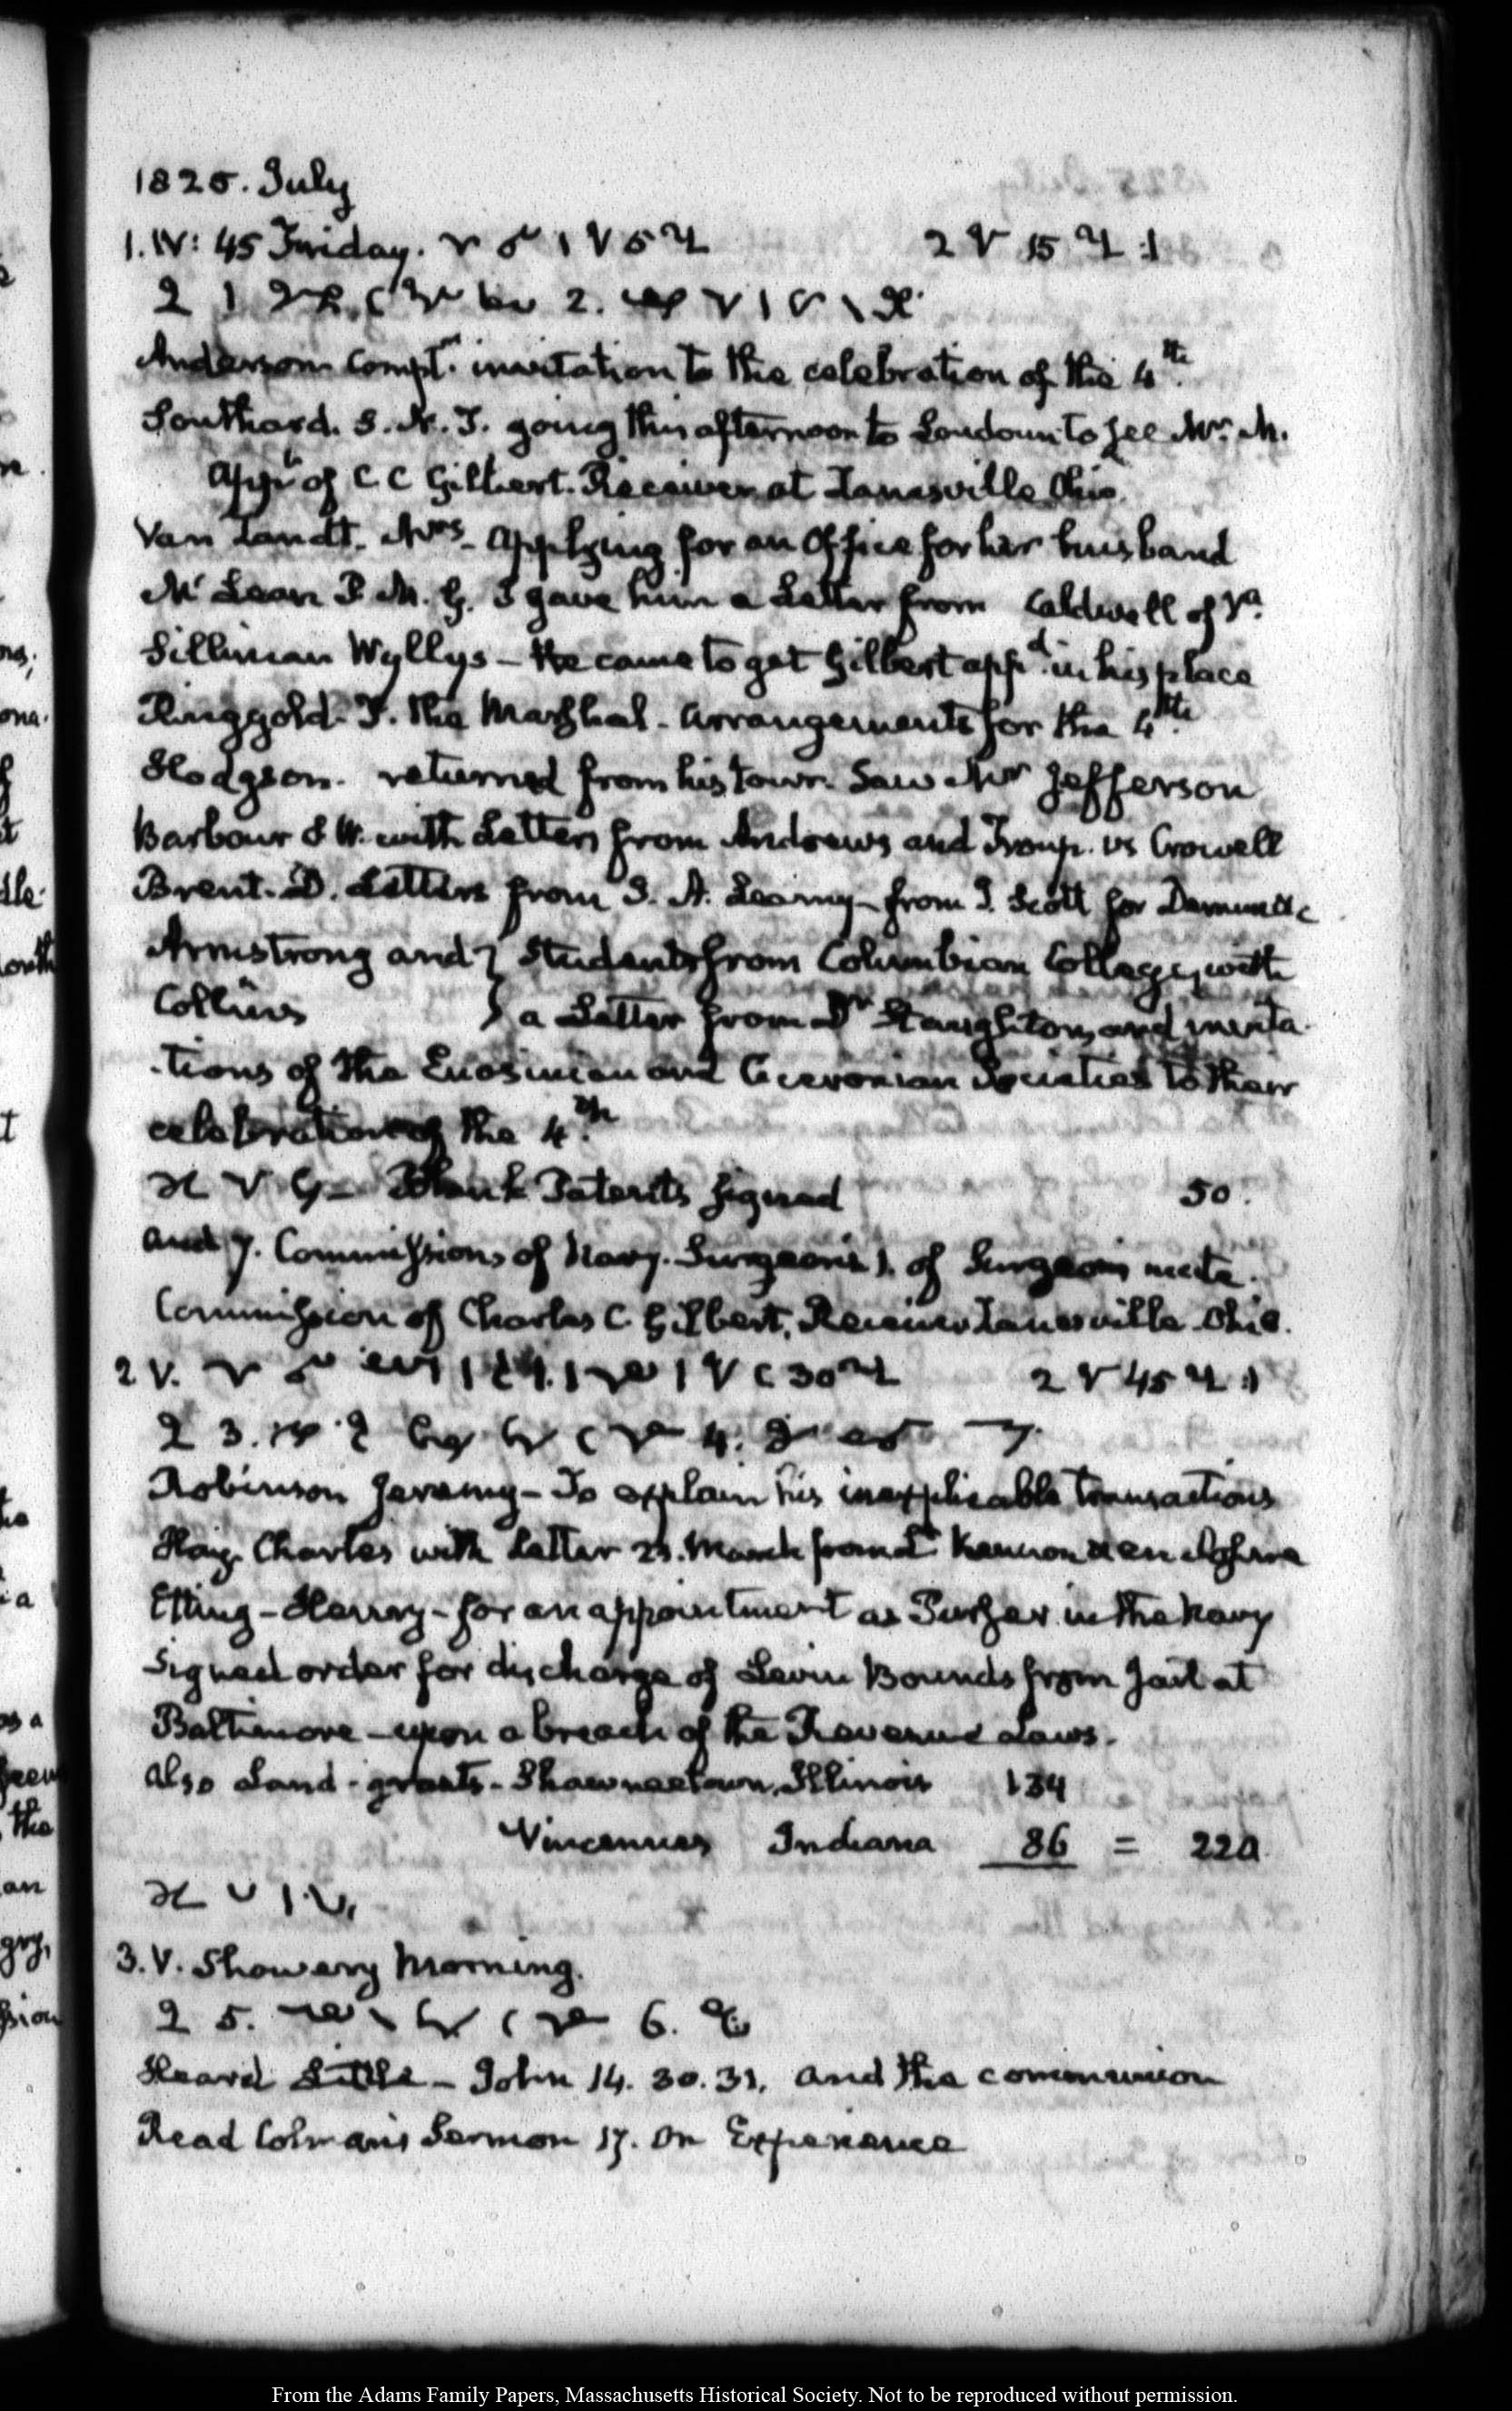 1825. July
1. IV: 45 Friday. 2 15
2 1 2.
Anderson Compt.r invitation to the celebration of the 4th.
Southard. S. N. T. going this afternoon to Loudoun to see Mr. M.
appt of C C Gilbert. Receiver at Zanesville Ohio.
Van Zandt. Mrs. applying for an Office for her husband
McLean P. M. G. I gave him a Letter from Caldwell of Va.
Silliman Wyllys — He came to get Gilbert appd. in his place
Ringgold. T. the Marshal. arrangements for the 4th.
Hodgson. returned from his tour. Saw Mr Jefferson
Barbour S W. with Letters from Andrews and Troup. vs Crowell
Brent. D. Letters from from J. Scott for
Armstrong and } Students from Columbian College, with
Collins } a Letter from Dr Staughton, and invita-
tions of the Enosinian and Ciceronian Societies to their
celebration of the 4th.
Blank Patents signed 50.
and 7. Commissions of Navy. Surgeons 1. of Surgeons mate.
Commission of Charles C. Gilbert, Receiver Zanesville Ohio.
2 V. 30 2 45
2 3. 4.
Robinson Jeremy — To explain his inexplicable transactions
Haig. Charles with Letter 23. March from
Etting — Henry — for an appointment as Purser in the Navy
Signed order for discharge of Levin Bounds from Jail at
Baltimore — upon a breach of the Revenue Laws.
also Land-grants — Shawneetown, Illinois 134
Vincennes Indiana 86 = 220
3. V. Showery Morning.
2 5. 6.
Heard Little — John 14. 30. 31. and the communion
Read Colman's Sermon 17. on Experience
From the Adams Family Papers, Massachusetts Historical Society. Not to be reproduced without permission.